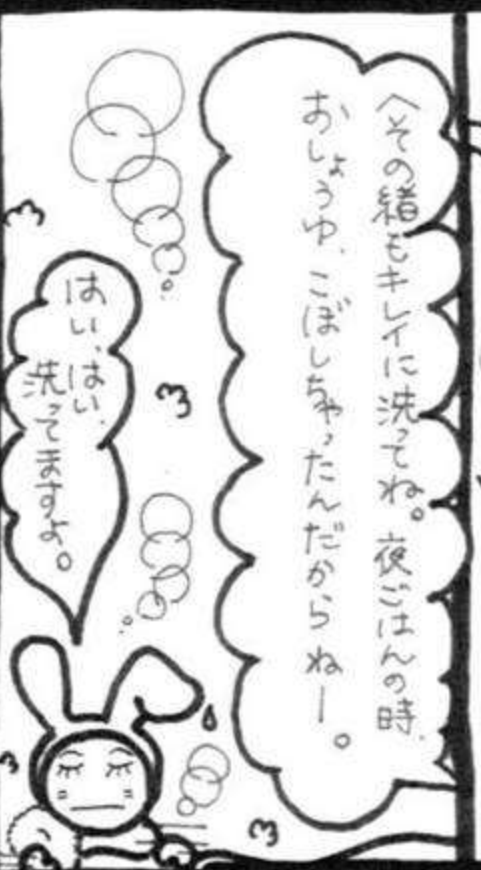 へその緒もキレイに洗ってね。夜ごはんの時、
おしょうゆ、こぼしちゃったんだからねー。
はい、はい、
洗ってますよ。